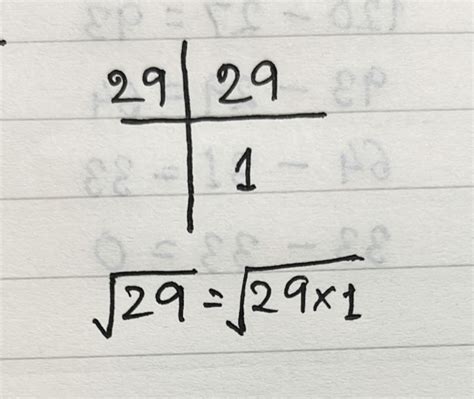 29 | 29
1
√29 = √29×1